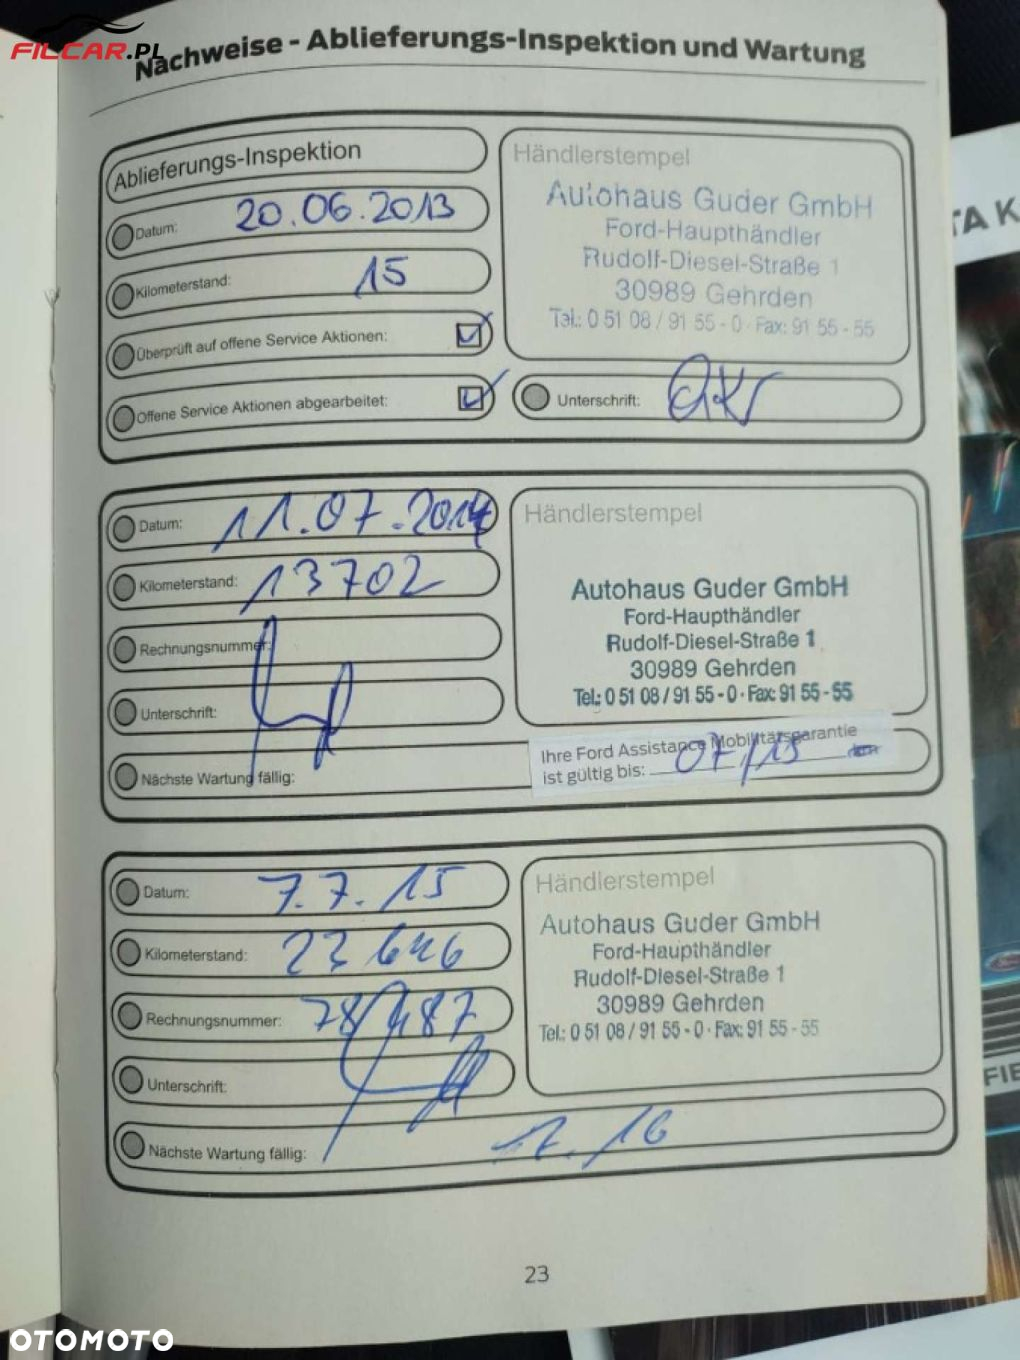 FILCAR.PL
Nachweise - Ablieferungs-Inspektion und Wartung
Ablieferungs-Inspektion
Datum: 20.06.2013
Kilometerstand: 15
Überprüft auf offene Service Aktionen:
Offene Service Aktionen abgearbeitet:
Händlerstempel
Autohaus Guder GmbH
Ford-Haupthändler
Rudolf-Diesel-Straße 1
30989 Gehrden
Tel.: 0 51 08 / 91 55 - 0 · Fax: 91 55 - 55
Unterschrift:
Datum: 11.07.2014
Kilometerstand: 13702
Rechnungsnummer:
Unterschrift:
Nächste Wartung fällig:
Händlerstempel
Autohaus Guder GmbH
Ford-Haupthändler
Rudolf-Diesel-Straße 1
30989 Gehrden
Tel.: 0 51 08 / 91 55 - 0 · Fax: 91 55 - 55
Ihre Ford Assistance Mobilitätsgarantie
ist gültig bis: 07/15
Datum: 7.7.15
Kilometerstand: 23646
Rechnungsnummer:
Unterschrift:
Nächste Wartung fällig: 7.16
Händlerstempel
Autohaus Guder GmbH
Ford-Haupthändler
Rudolf-Diesel-Straße 1
30989 Gehrden
Tel.: 0 51 08 / 91 55 - 0 · Fax: 91 55 - 55
23
TA K
FIE
OTOMOTO